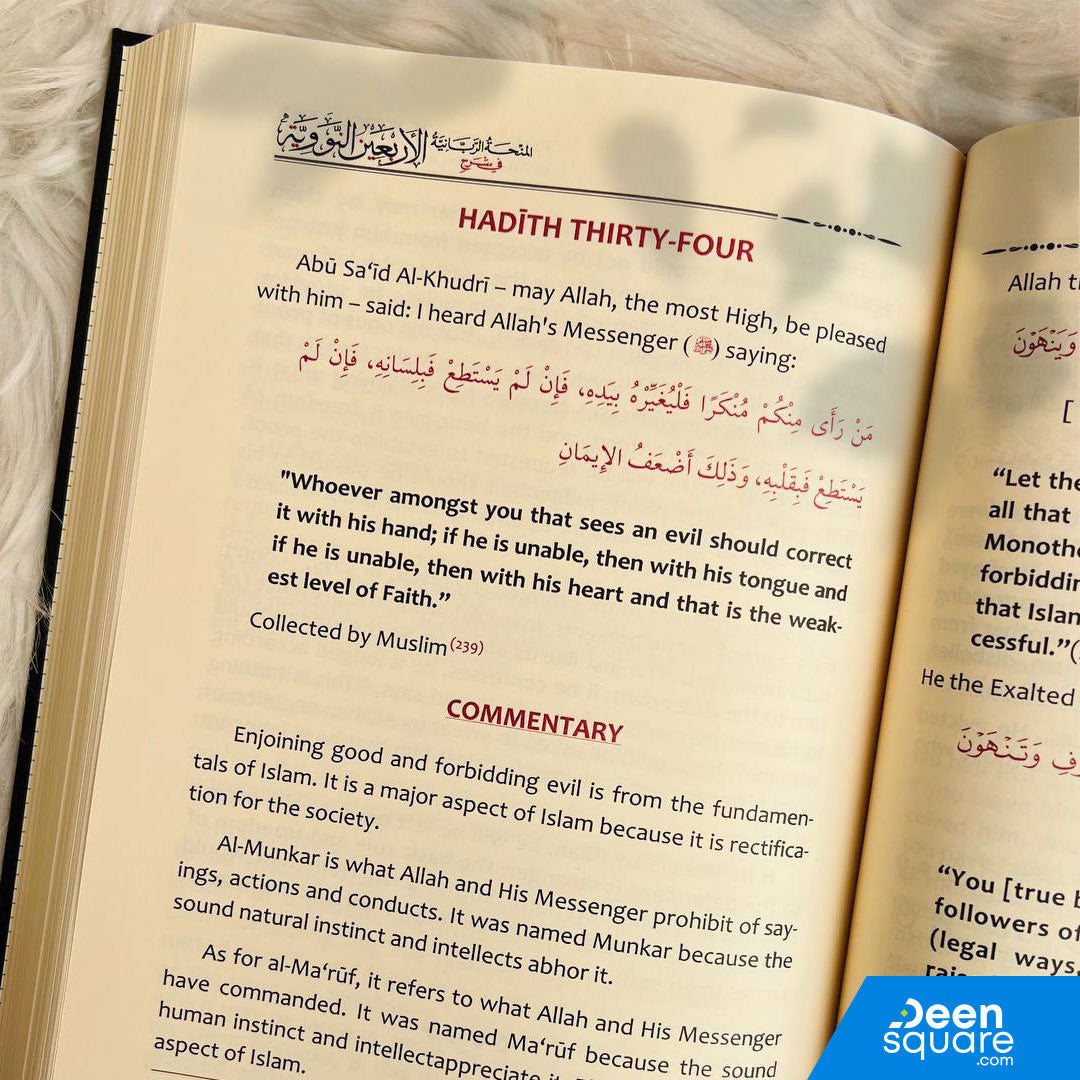 المنحة الربانية في شرح الأربعين النووية
HADĪTH THIRTY-FOUR
Abū Sa‘īd Al-Khudrī – may Allah, the most High, be pleased
with him – said: I heard Allah's Messenger (ﷺ) saying:
مَنْ رَأَى مِنْكُمْ مُنْكَرًا فَلْيُغَيِّرْهُ بِيَدِهِ، فَإِنْ لَمْ يَسْتَطِعْ فَبِلِسَانِهِ، فَإِنْ لَمْ
يَسْتَطِعْ فَبِقَلْبِهِ، وَذَلِكَ أَضْعَفُ الإِيمَانِ
"Whoever amongst you that sees an evil should correct
it with his hand; if he is unable, then with his tongue and
if he is unable, then with his heart and that is the weak-
est level of Faith.”
Collected by Muslim(239)
COMMENTARY
Enjoining good and forbidding evil is from the fundamen-
tals of Islam. It is a major aspect of Islam because it is rectifica-
tion for the society.
Al-Munkar is what Allah and His Messenger prohibit of say-
ings, actions and conducts. It was named Munkar because the
sound natural instinct and intellects abhor it.
As for al-Ma‘rūf, it refers to what Allah and His Messenger
have commanded. It was named Ma‘rūf because the sound
human instinct and intellectappreciate it.
aspect of Islam.
Allah
وَيَنْهَوْنَ
[
“Let the
all that
Monothe
forbiddin
that Islam
cessful.”(
He the Exalted
وَتَنْهَوْنَ
“You [true b
followers of
(legal ways,
Deen
square
.com